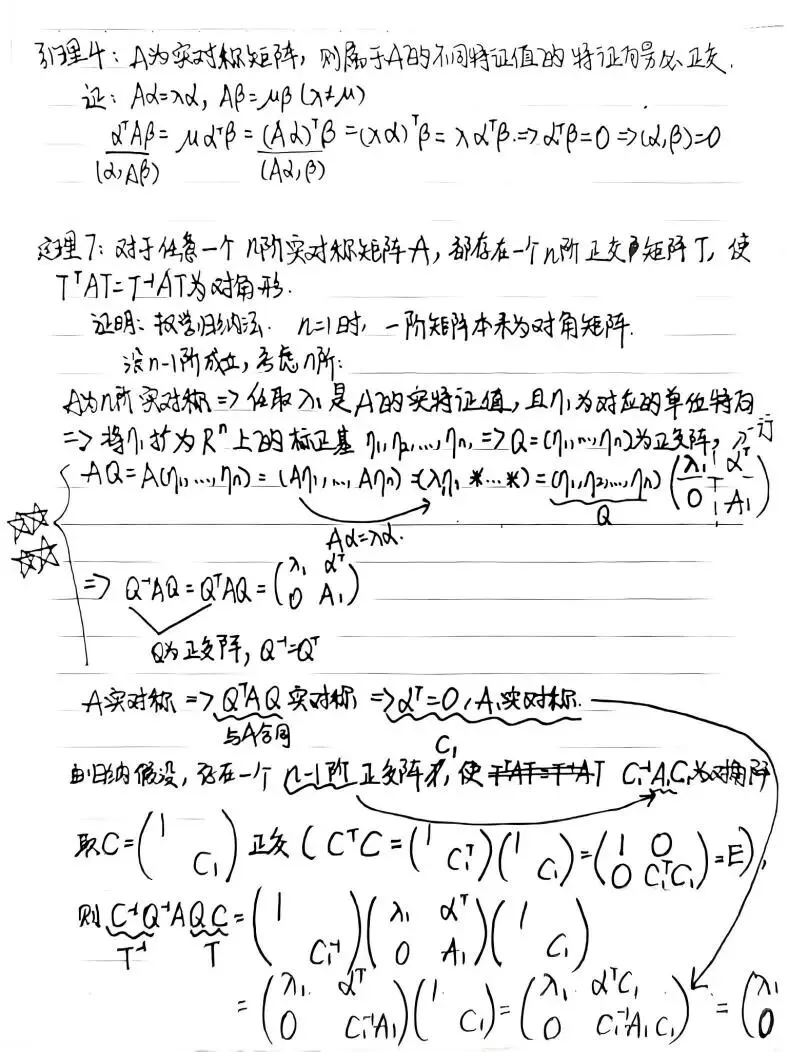 引理4：A为实对称矩阵，则属于A的不同特征值的特征向量必正交．
证：Aα=λα, Aβ=μβ (λ≠μ)
αᵀAβ = μαᵀβ = (Aα)ᵀβ = (λα)ᵀβ = λαᵀβ. ⇒ αᵀβ=0 ⇒ (α,β)=0
(α,Aβ) (Aα,β)
定理7：对于任意一个n阶实对称矩阵A，都存在一个n阶正交矩阵T，使
TᵀAT=T⁻¹AT为对角形．
证明：数学归纳法． n=1时，一阶矩阵本来为对角矩阵．
设n-1阶成立，考虑n阶：
A为n阶实对称 ⇒ 任取λ₁是A的实特征值，且η₁为对应的单位特向
⇒ 将η₁扩为Rⁿ上的标正基 η₁,η₂,…,ηn, ⇒ Q=(η₁,…,ηn)为正交阵，
AQ=A(η₁,…,ηn) = (Aη₁,…,Aηn) = (λ₁η₁ *…*) = (η₁,η₂,…,ηn) (λ₁ αᵀ
0 A₁)
Q
Aα=λα.
⇒ Q⁻¹AQ = QᵀAQ = (λ₁ αᵀ
0 A₁)
Q为正交阵，Q⁻¹=Qᵀ
A实对称 ⇒ QᵀAQ实对称 ⇒ αᵀ=0，A₁实对称.
与A合同
C₁
由归纳假设，存在一个n-1阶正交阵，使 TᵀAT=T⁻¹AT C₁⁻¹A₁C₁为对角阵
取C=(1
C₁) 正交 (CᵀC=(1
C₁ᵀ)(1
C₁)=(1 0
0 C₁ᵀC₁)=E)，
则 C⁻¹Q⁻¹AQC = (1
C₁⁻¹)(λ₁ αᵀ
0 A₁)(1
C₁)
T⁻¹ T
= (λ₁ αᵀ
0 C₁⁻¹A₁)(1
C₁) = (λ₁ αᵀC₁
0 C₁⁻¹A₁C₁) = (λ₁
0